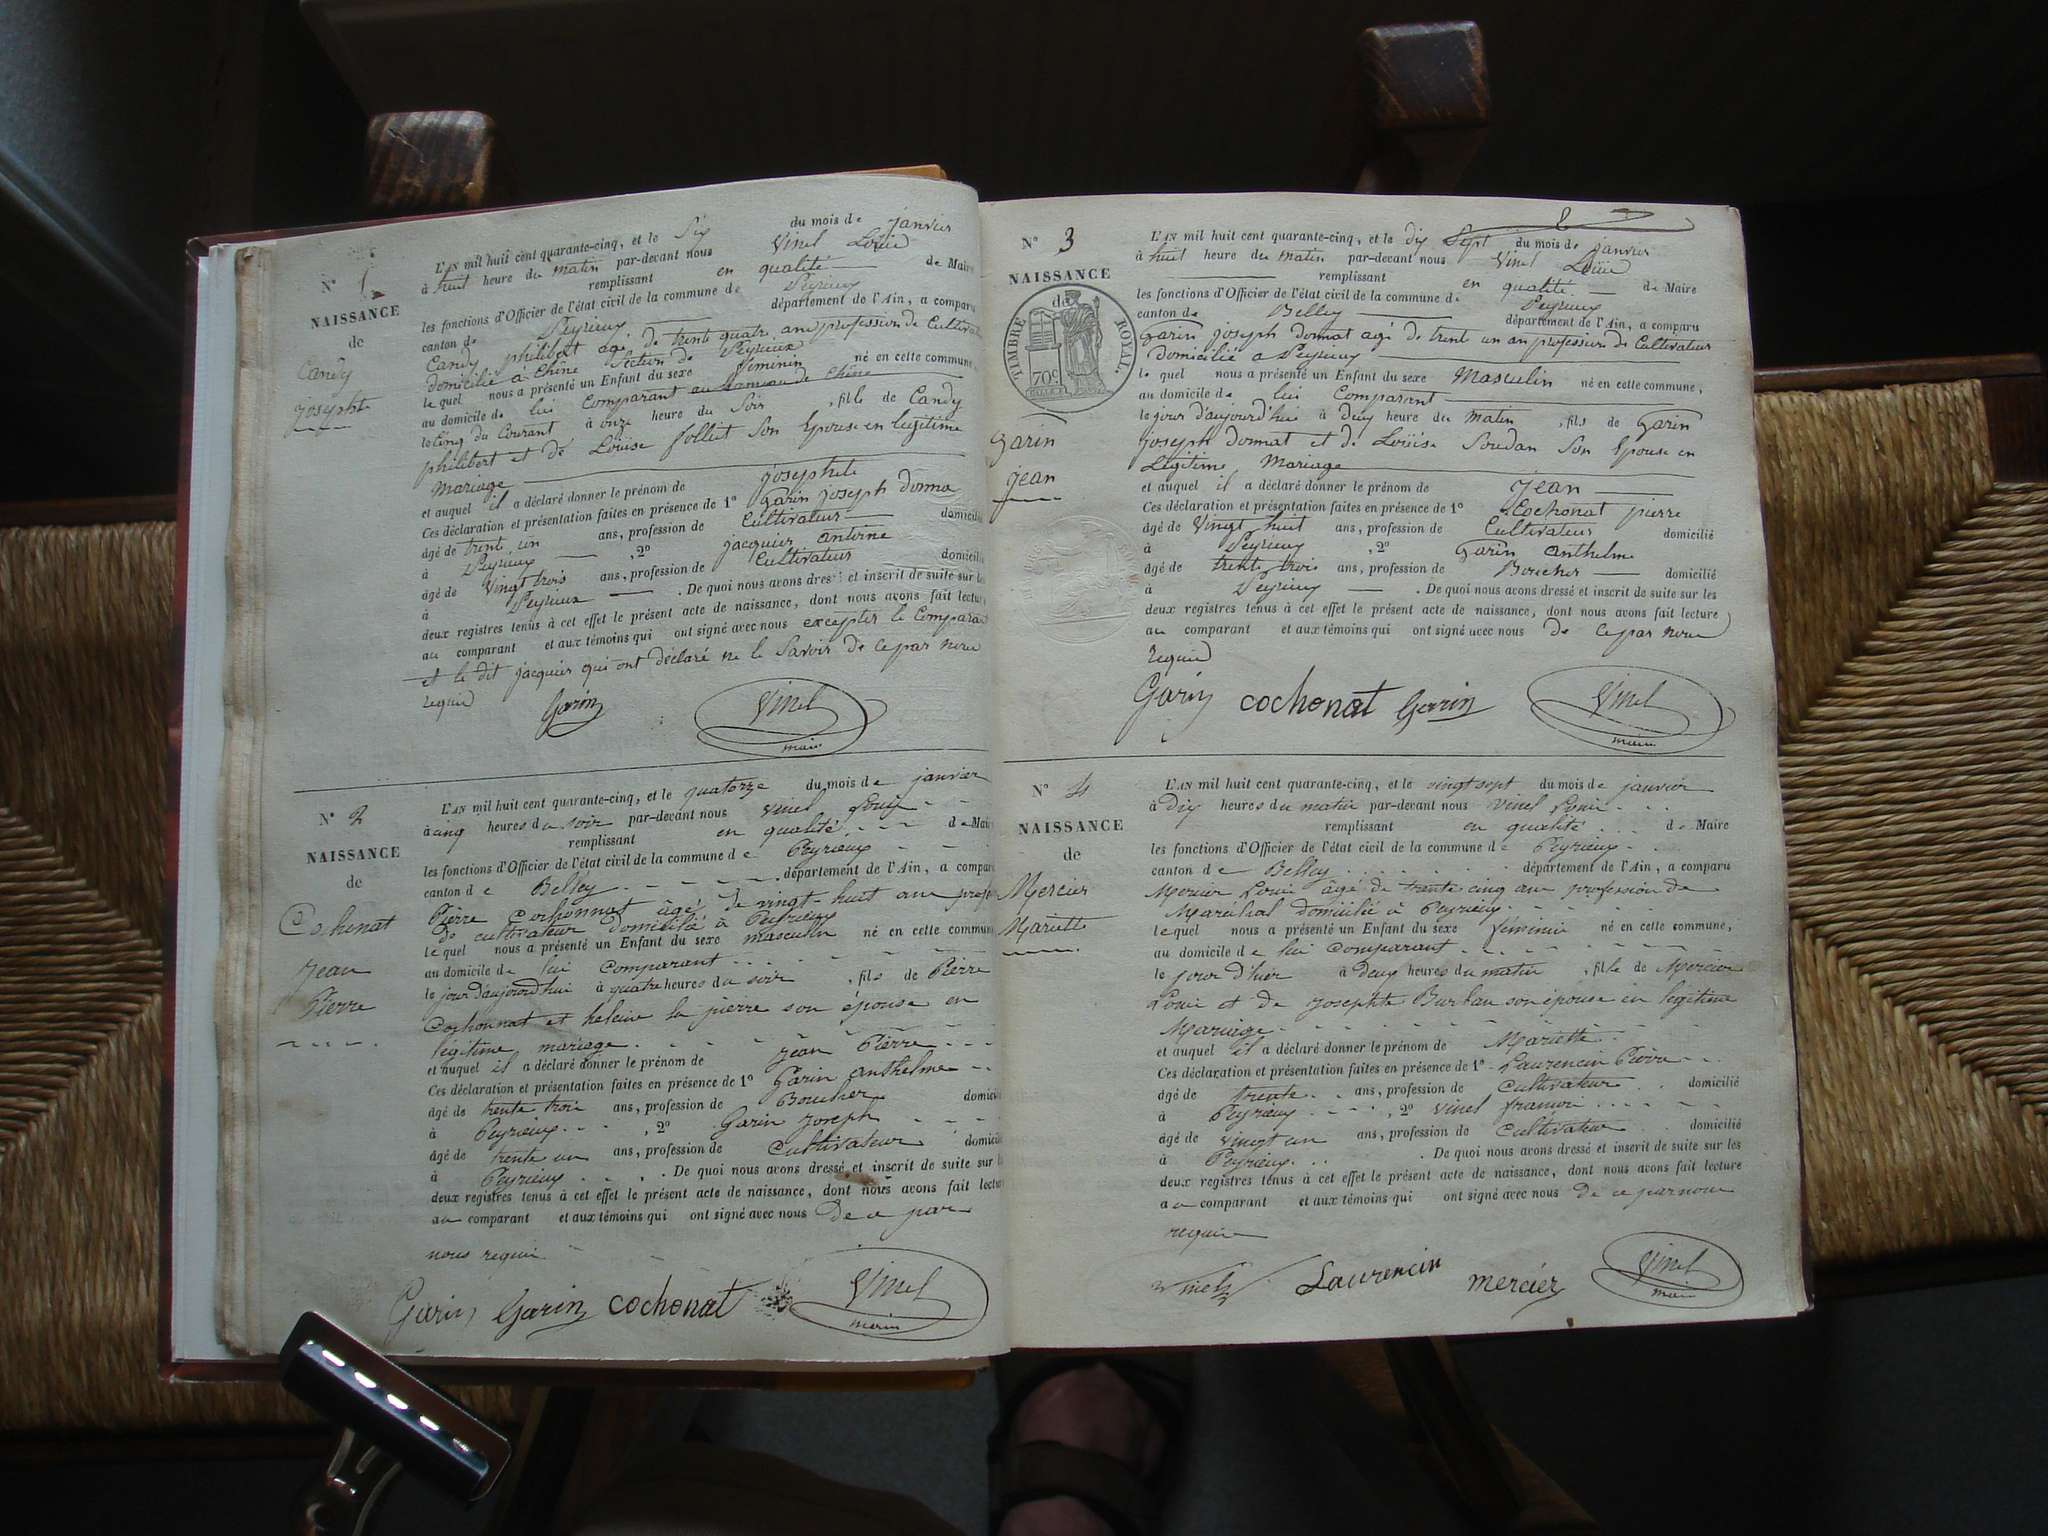 N° 1
NAISSANCE
de
Candy
Josephte
L'AN mil huit cent quarante-cinq, et le Six du mois de janvier
à huit heure du matin par-devant nous Vinel Loüis
remplissant en qualité de Maire
les fonctions d'Officier de l'état civil de la commune de Peyrieux
canton de Peyrieux département de l'Ain, a comparu
Candy philibert agé de trent quatre ans profession de Cultivat
domicilié à Chêne Section de Peyrieux
le quel nous a présenté un Enfant du sexe feminin né en cette commune
au domicile de lui Comparant au hameau de Chêne
le Cinq du Courant à onze heure du Soir , fille de Candy
philibert et de Loüise follut Son Epouse en legitime
Mariage
et auquel il a déclaré donner le prénom de josephte
Ces déclaration et présentation faites en présence de 1° Garin joseph donna
âgé de trent un ans, profession de Cultivateur domicilié
à Peyrieux , 2° jacquier antoine
âgé de Vingt trois ans, profession de Cultivateur domicilié
à Peyrieux . De quoi nous avons dressé et inscrit de suite sur les
deux registres tenus à cet effet le présent acte de naissance, dont nous avons fait lecture
au comparant et aux témoins qui ont signé avec nous excepter le Compara
et le dit jacquier qui ont déclaré ne le Savoir de ce par nous
requis
Garin Vinel
maire
N° 2
NAISSANCE
de
Cochonat
Jean
Pierre
L'AN mil huit cent quarante-cinq, et le quatorze du mois de janvier
à cinq heures du soir par-devant nous Vinel Louis
remplissant en qualité de Maire
les fonctions d'Officier de l'état civil de la commune de Peyrieux
canton de Belley département de l'Ain, a comparu
Pierre Cochonnat âgé de vingt-huit ans profes
de cultivateur domicilié à Peyrieux
le quel nous a présenté un Enfant du sexe masculin né en cette commune
au domicile de lui comparant
le jour d'aujourd'hui à quatre heures du soir , fils de Pierre
Cochonnat et heleine la pierre son épouse en
légitime mariage
et auquel il a déclaré donner le prénom de Jean Pierre
Ces déclaration et présentation faites en présence de 1° Garin anthelme
âgé de trente trois ans, profession de Boucher domicilié
à Peyrieux , 2° Garin Joseph
âgé de trente un ans, profession de Cultivateur domicilié
à Peyrieux . De quoi nous avons dressé et inscrit de suite sur les
deux registres tenus à cet effet le présent acte de naissance, dont nous avons fait lecture
au comparant et aux témoins qui ont signé avec nous De ce par
nous requis
Garin Garin cochonat Vinel
maire
2
N° 3
NAISSANCE
de
TIMBRE ROYAL.
70c
Garin
Jean
L'AN mil huit cent quarante-cinq, et le dix Sept du mois de janvier
à huit heure du matin par-devant nous Vinel Loüis
remplissant en qualité de Maire
les fonctions d'Officier de l'état civil de la commune de Peyrieux
canton de Belley département de l'Ain, a comparu
Garin joseph donnat agé de trent un an profession de Cultivateur
domicilié a Peyrieux
le quel nous a présenté un Enfant du sexe Masculin né en cette commune,
au domicile de lui Comparent
le jour d'aujourd'hui à deux heure du matin , fils de Garin
joseph donnat et de Loüise Soudan Son Epouse en
Legitime Mariage
et auquel il a déclaré donner le prénom de Jean
Ces déclaration et présentation faites en présence de 1° Cochonat pierre
âgé de Vingt huit ans, profession de Cultivateur domicilié
à Peyrieux , 2° Garin anthelme
âgé de trente trois ans, profession de Boucher domicilié
à Peyrieux . De quoi nous avons dressé et inscrit de suite sur les
deux registres tenus à cet effet le présent acte de naissance, dont nous avons fait lecture
au comparant et aux témoins qui ont signé avec nous de ce par nous
requis
Garin cochonat Garin Vinel
maire
N° 4
NAISSANCE
de
Mercier
Mariette
L'AN mil huit cent quarante-cinq, et le vingt sept du mois de janvier
à Dix heures du matin par-devant nous Vinel Louis
remplissant en qualité de Maire
les fonctions d'Officier de l'état civil de la commune de Peyrieux
canton de Belley département de l'Ain, a comparu
Mercier Louis âgé de trente cinq ans profession de
Maréchal domicilié à Peyrieux
le quel nous a présenté un Enfant du sexe féminin né en cette commune,
au domicile de lui comparant
le jour d'hier à deux heures du matin , fille de Mercier
Louis et de Josephte Burlau son épouse en légitime
Mariage
et auquel il a déclaré donner le prénom de Mariette
Ces déclaration et présentation faites en présence de 1° Laurencin Pierre
âgé de trente ans, profession de Cultivateur domicilié
à Peyrieux , 2° Vinel francois
âgé de vingt un ans, profession de Cultivateur domicilié
à Peyrieux . De quoi nous avons dressé et inscrit de suite sur les
deux registres tenus à cet effet le présent acte de naissance, dont nous avons fait lecture
au comparant et aux témoins qui ont signé avec nous De ce par nous
requis
Vinel Laurencin mercier Vinel
maire